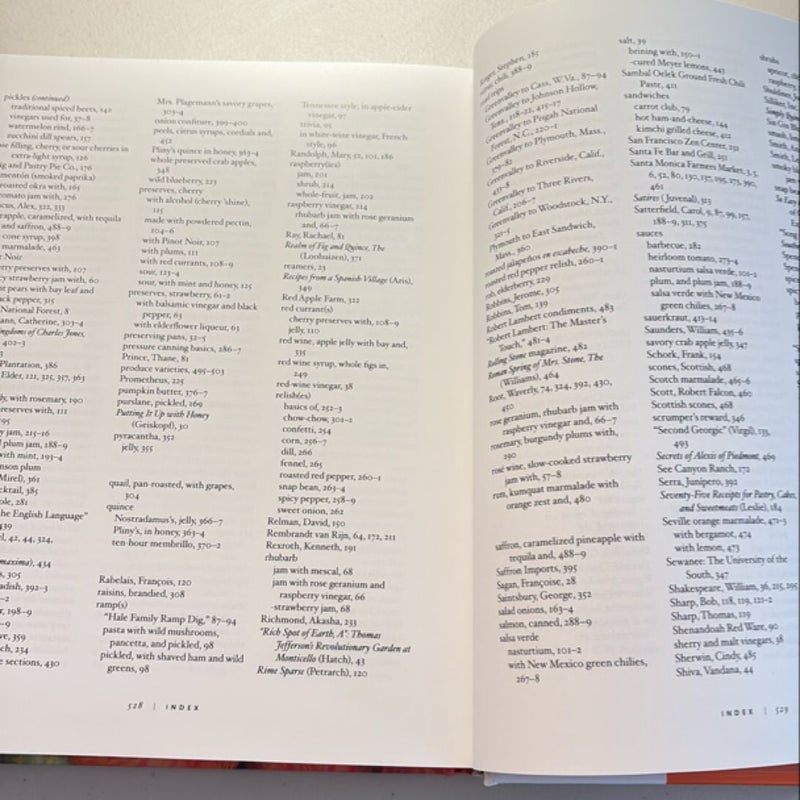 pickles (continued)
traditional spiced beets, 142
vinegars used for, 37–8
watermelon rind, 166–7
zucchini dill spears, 157
filling, cherry, or sour cherries in
extra-light syrup, 126
and Pastry Pie Co., 176
(smoked paprika)
roasted okra with, 165
tomato jam with, 276
Alex, 322, 333
caramelized, with tequila
and saffron, 488–9
cone syrup, 398
marmalade, 463
Noir
preserves with, 107
strawberry jam with, 60
pears with bay leaf and
pepper, 315
National Forest, 8
Catherine, 303–4
of Charles Jones,
402–3
Plantation, 386
Elder, 121, 325, 357, 363
with rosemary, 190
preserves with, 111
jam, 215–16
plum jam, 188–9
with mint, 193–4
plum
361
385
281
the English Language"
439
42, 44, 324,
434
305
392–3
198–9
359
234
sections, 430
Mrs. Plagemann's savory grapes,
303–4
onion confiture, 399–400
peels, citrus syrups, cordials and,
452
Pliny's quince in honey, 363–4
whole preserved crab apples,
348
wild blueberry, 223
preserves, cherry
with alcohol (cherry 'shine),
115
made with powdered pectin,
104–6
with Pinot Noir, 107
with plums, 111
with red currants, 108–9
sour, 123–4
sour, with mint and honey, 125
preserves, strawberry, 61–2
with balsamic vinegar and black
pepper, 63
with elderflower liqueur, 63
preserving pans, 32–5
pressure canning basics, 286–7
Prince, Thane, 81
produce varieties, 495–503
Prometheus, 225
pumpkin butter, 376–7
purslane, pickled, 269
Putting It Up with Honey
(Geiskopf), 30
pyracantha, 352
jelly, 355
quail, pan-roasted, with grapes,
304
quince
Nostradamus's, jelly, 366–7
Pliny's, in honey, 363–4
ten-hour membrillo, 370–2
Rabelais, François, 120
raisins, brandied, 308
ramp(s)
"Hale Family Ramp Dig," 87–94
pasta with wild mushrooms,
pancetta, and pickled, 98
pickled, with shaved ham and wild
greens, 98
Tennessee style, in apple-cider
vinegar, 97
trivia, 95
in white-wine vinegar, French
style, 96
Randolph, Mary, 52, 101, 186
raspberry(ies)
jam, 201
shrub, 214
whole-fruit, jam, 202
raspberry vinegar, 214
rhubarb jam with rose geranium
and, 66–7
Ray, Rachael, 81
Realm of Fig and Quince, The
(Loohuizen), 371
reamers, 23
Recipes from a Spanish Village (Aris),
349
Red Apple Farm, 322
red currant(s)
cherry preserves with, 108–9
jelly, 110
red wine, apple jelly with bay and,
335
red wine syrup, whole figs in,
249
red-wine vinegar, 38
relish(es)
basics of, 252–3
chow-chow, 301–2
confetti, 254
corn, 256–7
dill, 266
fennel, 265
roasted red pepper, 260–1
snap bean, 263–4
spicy pepper, 258–9
sweet onion, 262
Relman, David, 150
Rembrandt van Rijn, 64, 172, 211
Rexroth, Kenneth, 191
rhubarb
jam with mescal, 68
jam with rose geranium and
raspberry vinegar, 66
-strawberry jam, 68
Richmond, Akasha, 233
"Rich Spot of Earth, A": Thomas
Jefferson's Revolutionary Garden at
Monticello (Hatch), 43
Rime Sparse (Petrarch), 120
528 | INDEX
Stephen, 185
chili, 388–9
road trips
Greenvalley to Cass, W.Va., 87–94
Greenvalley to Johnson Hollow,
118–22, 415–17
Greenvalley to Pisgah National
Forest, N.C., 220–1
Greenvalley to Plymouth, Mass.,
179–82
Greenvalley to Riverside, Calif.,
437–8
Greenvalley to Three Rivers,
Calif., 206–7
Greenvalley to Woodstock, N.Y.,
321–5
Plymouth to East Sandwich,
Mass., 360
roasted jalapeños en escabeche, 390–1
roasted red pepper relish, 260–1
rob, elderberry, 229
Robbins, Jerome, 305
Robbins, Tom, 139
Robert Lambert condiments, 483
"Robert Lambert: The Master's
Touch," 481–4
Rolling Stone magazine, 482
Roman Spring of Mrs. Stone, The
(Williams), 464
Root, Waverly, 74, 324, 392, 430,
450
rose geranium, rhubarb jam with
raspberry vinegar and, 66–7
rosemary, burgundy plums with,
190
rosé wine, slow-cooked strawberry
jam with, 57–8
rum, kumquat marmalade with
orange zest and, 480
saffron, caramelized pineapple with
tequila and, 488–9
Saffron Imports, 395
Sagan, Françoise, 28
Saintsbury, George, 352
salad onions, 163–4
salmon, canned, 288–9
salsa verde
nasturtium, 101–2
with New Mexico green chilies,
267–8
salt, 39
brining with, 150–1
-cured Meyer lemons, 443
Sambal Oelek Ground Fresh Chili
Paste, 411
sandwiches
carrot club, 79
hot ham-and-cheese, 144
kimchi grilled cheese, 412
San Francisco Zen Center, 251
Santa Fe Bar and Grill, 251
Santa Monica Farmers Market, 3, 5,
6, 52, 80, 130, 137, 195, 273, 390,
461
Satires (Juvenal), 323
Satterfield, Carol, 9, 87, 99, 157,
188–9, 311, 375
sauces
barbecue, 282
heirloom tomato, 273–4
nasturtium salsa verde, 101–2
plum, and plum jam, 188–9
salsa verde with New Mexico
green chilies, 267–8
sauerkraut, 413–14
Saunders, William, 435–6
savory crab apple jelly, 347
Schork, Frank, 154
scones, Scottish, 468
Scotch marmalade, 465–6
Scott, Robert Falcon, 460
Scottish scones, 468
scrumper's reward, 346
"Second Georgic" (Virgil), 133,
493
Secrets of Alexis of Piedmont, 469
See Canyon Ranch, 172
Serra, Junipero, 392
Seventy-Five Receipts for Pastry, Cakes,
and Sweetmeats (Leslie), 184
Seville orange marmalade, 472–3
with bergamot, 474
with lemon, 473
Sewanee: The University of the
South, 347
Shakespeare, William, 36, 215, 295
Sharp, Bob, 118, 119, 121–2
Sharp, Thomas, 119
Shenandoah Red Ware, 90
sherry and malt vinegars, 38
Sherwin, Cindy, 485
Shiva, Vandana, 44
shrubs
INDEX | 529